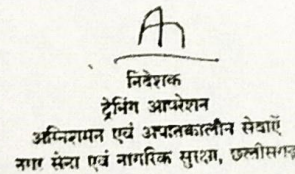 निदेशक
ट्रेनिंग आपरेशन
अग्निशमन एवं अपातकालीन सेवाएँ
नगर सेना एवं नागरिक सुरक्षा, छत्तीसगढ़